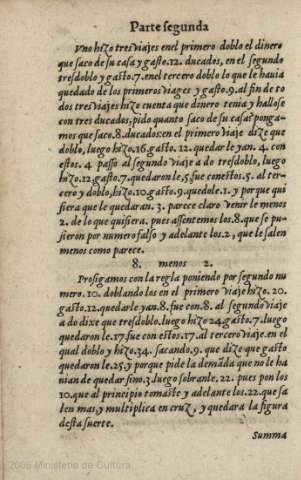 Parte segunda
Vno hizo tres viajes en el primero doblo el dinero
que saco de su casa y gasto.12. ducados, en el segundo
tresdoblo y gasto.7.en el tercero doblo lo que le hauia
quedado de los primeros viages y gasto.9.al fin de to
dos tres viajes hizo cuenta que dinero tenia y hallose
con tres ducados, pido quanto saco de su casa? ponga-
mos que saco.8.ducados: en el primero viaje dize que
doblo, luego hizo.16.gasto.12. quedar le yan.4. con
estos.4 passo al segundo viaje a do tresdoblo, luego
hizo.12.gasto.7.quedaron le.5.fue con estos.5. al ter-
cero y doblo, hizo.10.gasto.9.quedele.1. y porque qui
siera que le quedaran.3. parece claro venir le menos
2.de lo que quisiera. pues assentemos los.8.que se pu-
sieron por numero falso y adelante los.2, que le salen
menos como parece.
8. menos 2.
Prosigamos con la regla poniendo por segundo nu
mero.10.doblando los en el primero viaje hizo.20.
gasto.12.quedarle yan.8.fue con.8. al segundo viaje
a do dixe que tresdoblo.luego hizo 24.gasto.7.luego
quedaron le.17.fue con estos.17.al tercero viaje.en el
qual doblo y hizo.34. sacando.9. que dize que gasto
quedaron le.25.y porque pide la demãda que no le ha
uian de quedar sino.3.luego sobranle.22. pues pon los
10.que al principio tomaste y adelante los.22.que sa
len mas, y multiplica en cruz, y quedara la figura
desta suerte.
Summa
2006 Ministerio de Cultura